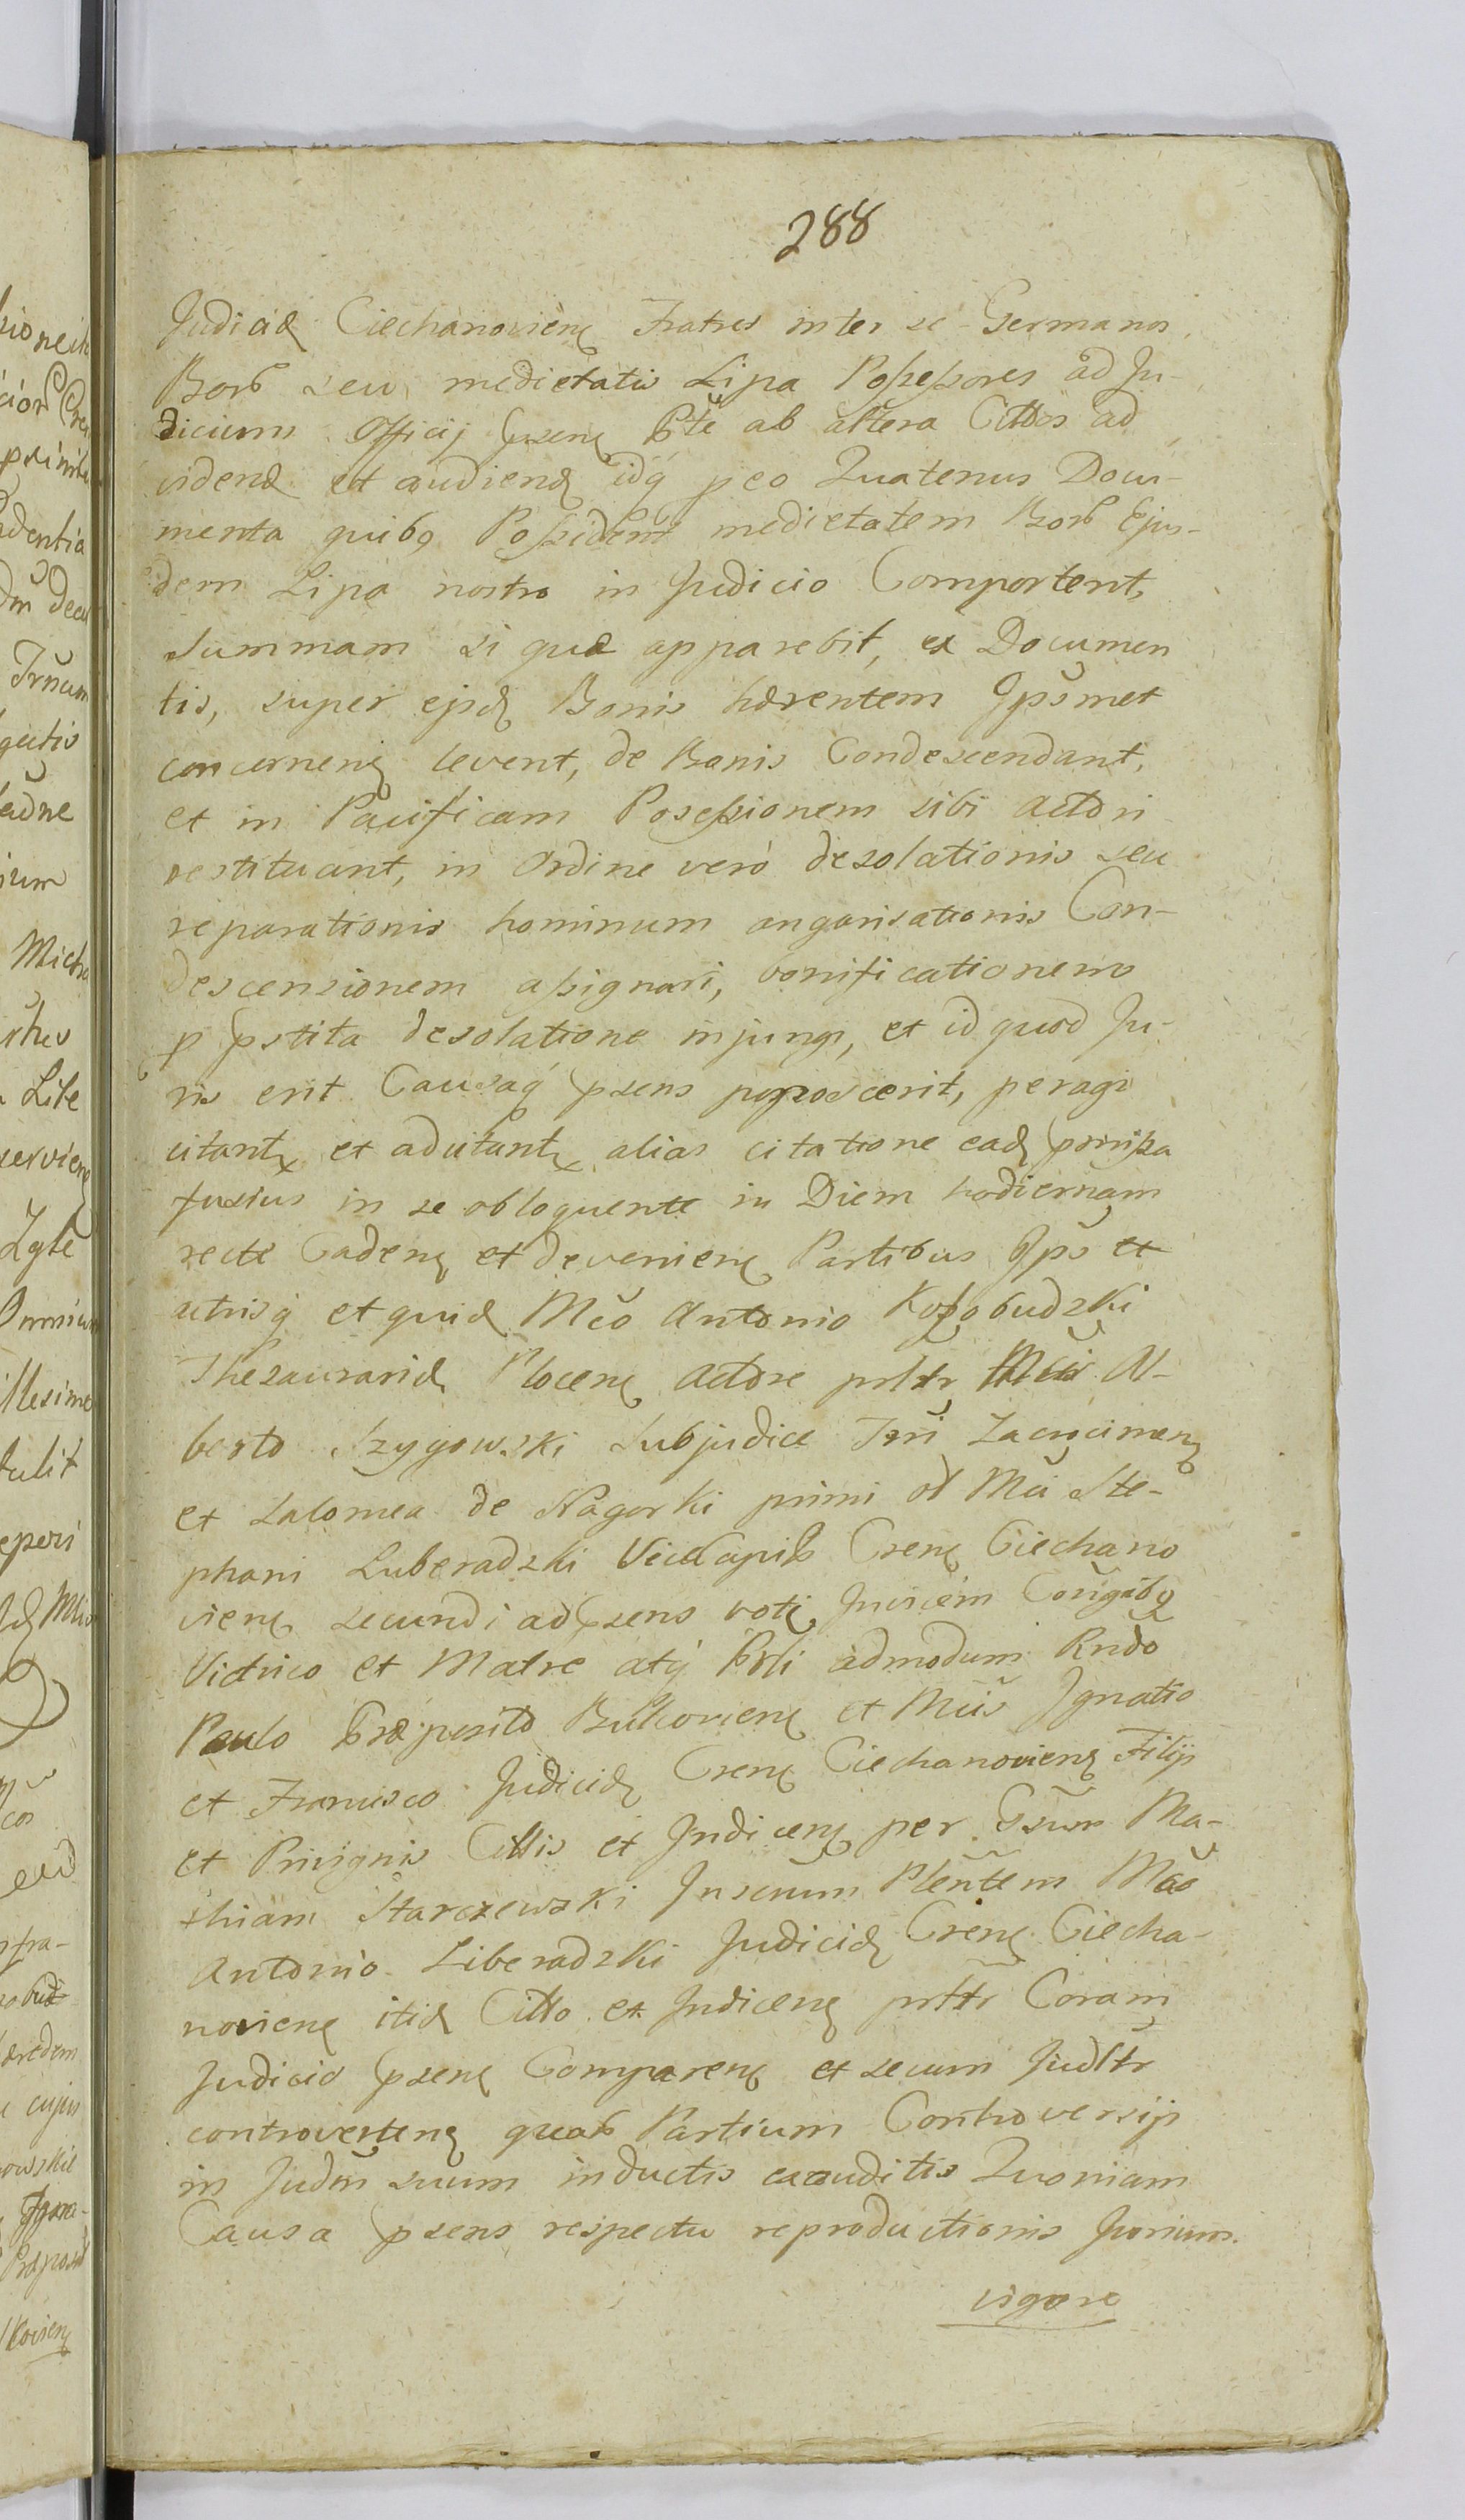 288
Judicid Ciechanoviens Fratres inter se Germanos
Bonor seu medietatis Lipa Possessores ad Ju-
dicium Officij psens Pte ab altera Cittos ad
videnđ et audienđ idq peo Quatenus Docu-
menta quibq Possident medietatem Bonor Ejus-
dem Lipa nostro in Judicio Comportent,
Summam si quæ apparebit, ex Documen
tis, super ejsd Bonis hærentem Ipsmet
concernens levent, de Bonis Condescendant,
et in Pacificam Posessionem sibi Actori
restituant, in Ordine veró desolationis seu
reparationis hominum angarisationis Con-
descensionem assignari, bonificationemq
p pstita desolatione injungi, et id quod Ju-
ris erit Causaq psens poposcerit, peragi
citant et adcitant alias citatione ead pmissa
fusius in se obloquente in Diem hodiernam
recte Cadens et deveniens Partibus Ips et
utrisq et quid Mco Antonio Kossobudzki
Thesaurarid Plocens Actore prltr Mcis Al-
berto Szygowski Subjudice Trri Zacrocimens
et Salomea de Nagorki primi ol Mci Ste-
phani Luberadzki ViceCapib Crens Ciechano
viens secundi ad psens voti Invicem Congibq
Victrico et Matre atq Prli admodum Rndo
Paulo Præposito Bulkoviens et Mcis Ignatio
et Francisco Judicid Crens Ciechanoviens Filijs
et Privignis Cittis et Indicens per Gsum Ma-
thiam Starczewski Inscrum Plentem Mco
Antonio Liberadzki Judicid Crens Ciecha-
noviens itid Citto et Indicens prltr Coram
Judicio psens Comparens et secum Judltr
controvertens quar Partium Controversijs
in Judm suum inductis exauditis Quoniam
Causa psens respectu reproductionis Jurium
vigore